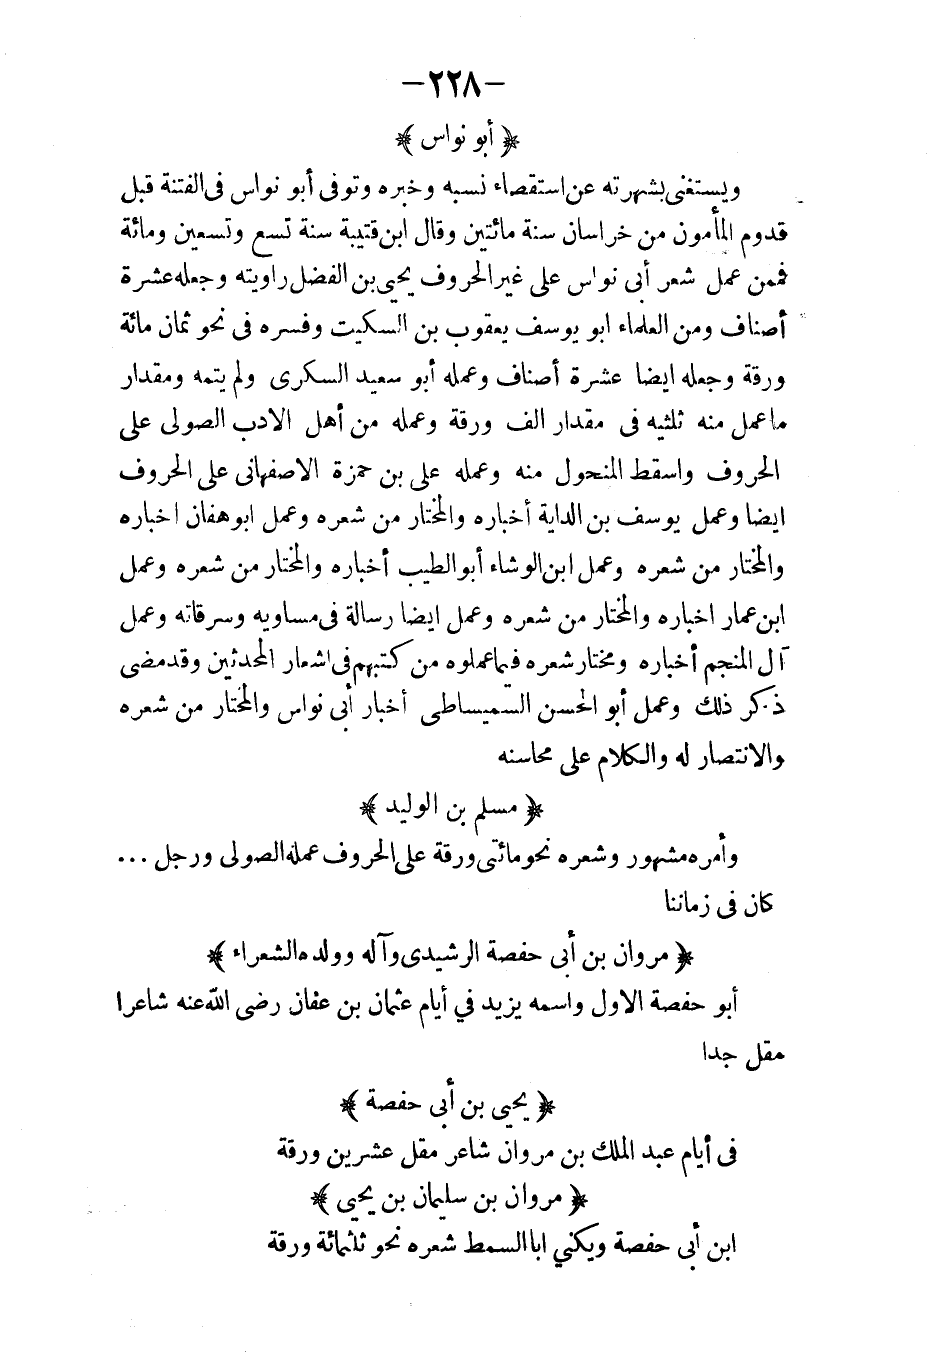 -٢٢٨-
﴿ أبو نواس ﴾
ويستغنى بشهرته عن استقصاء نسبه وخبره وتوفى أبو نواس فى الفتنة قبل
قدوم المأمون من خراسان سنة مائتين وقال ابن قتيبة سنة تسع وتسعين ومائة
فممن عمل شعر أبى نواس على غير الحروف يحيى بن الفضل راويته وجعله عشرة
أصناف ومن العلماء ابو يوسف يعقوب بن السكيت وفسره فى نحو ثمان مائة
ورقة وجعله ايضا عشرة أصناف وعمله أبو سعيد السكرى ولم يتمه ومقدار
ماعمل منه ثلثيه فى مقدار الف ورقة وعمله من أهل الادب الصولى على
الحروف واسقط المنحول منه وعمله على بن حمزة الاصفهانى على الحروف
ايضا وعمل يوسف بن الداية أخباره والمختار من شعره وعمل ابو هفان اخباره
والمختار من شعره وعمل ابن الوشاء أبو الطيب أخباره والمختار من شعره وعمل
ابن عمار اخباره والمختار من شعره وعمل ايضا رسالة فى مساويه وسرقاته وعمل
آل المنجم أخباره ومختار شعره فيما عملوه من كتبهم فى اشعار المحدثين وقد مضى
ذكر ذلك وعمل أبو الحسن السميساطى أخبار أبى نواس والمختار من شعره
والانتصار له والكلام على محاسنه
﴿ مسلم بن الوليد ﴾
وأمره مشهور وشعره نحو مائتى ورقة على الحروف عمله الصولى ورجل ...
كان فى زماننا
﴿ مروان بن أبى حفصة الرشيدى وآله وولده الشعراء ﴾
أبو حفصة الاول واسمه يزيد في أيام عثمان بن عفان رضى الله عنه شاعرا
مقل جدا
﴿ يحيى بن أبى حفصة ﴾
فى أيام عبد الملك بن مروان شاعر مقل عشرين ورقة
﴿ مروان بن سليمان بن يحيى ﴾
ابن أبى حفصة ويكني ابا السمط شعره نحو ثلثمائة ورقة